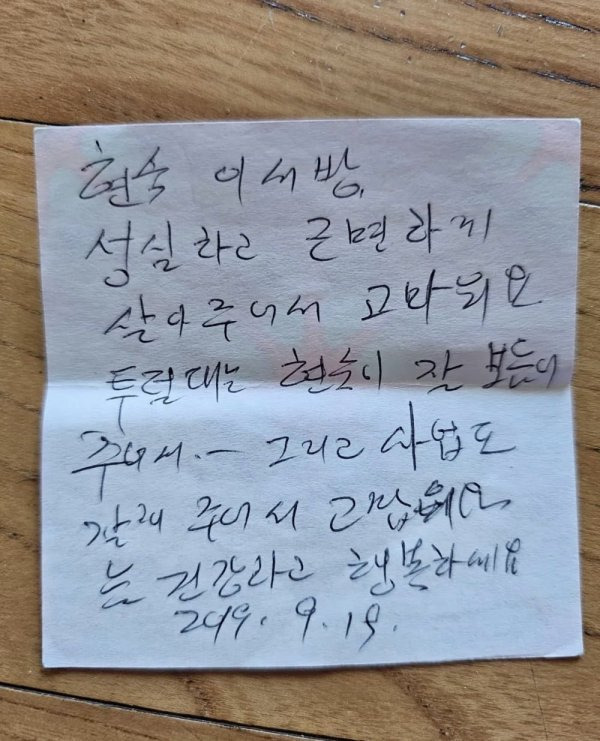 현숙 이서방,
성실하고 근면하게
살아주어서 고마워요
투덜대는 현숙이 잘 보듬어
주어서.― 그리고 사업도
잘해 주어서 고맙워요
늘 건강하고 행복하세요
2019. 9. 19.